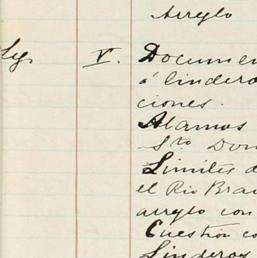 Arreglo
Leg. V. Documen
á lindero
ciones.
Alamos
Sto Dom
Limites d
el Rio Bra
arreglo con
Cuestión co
Linderos